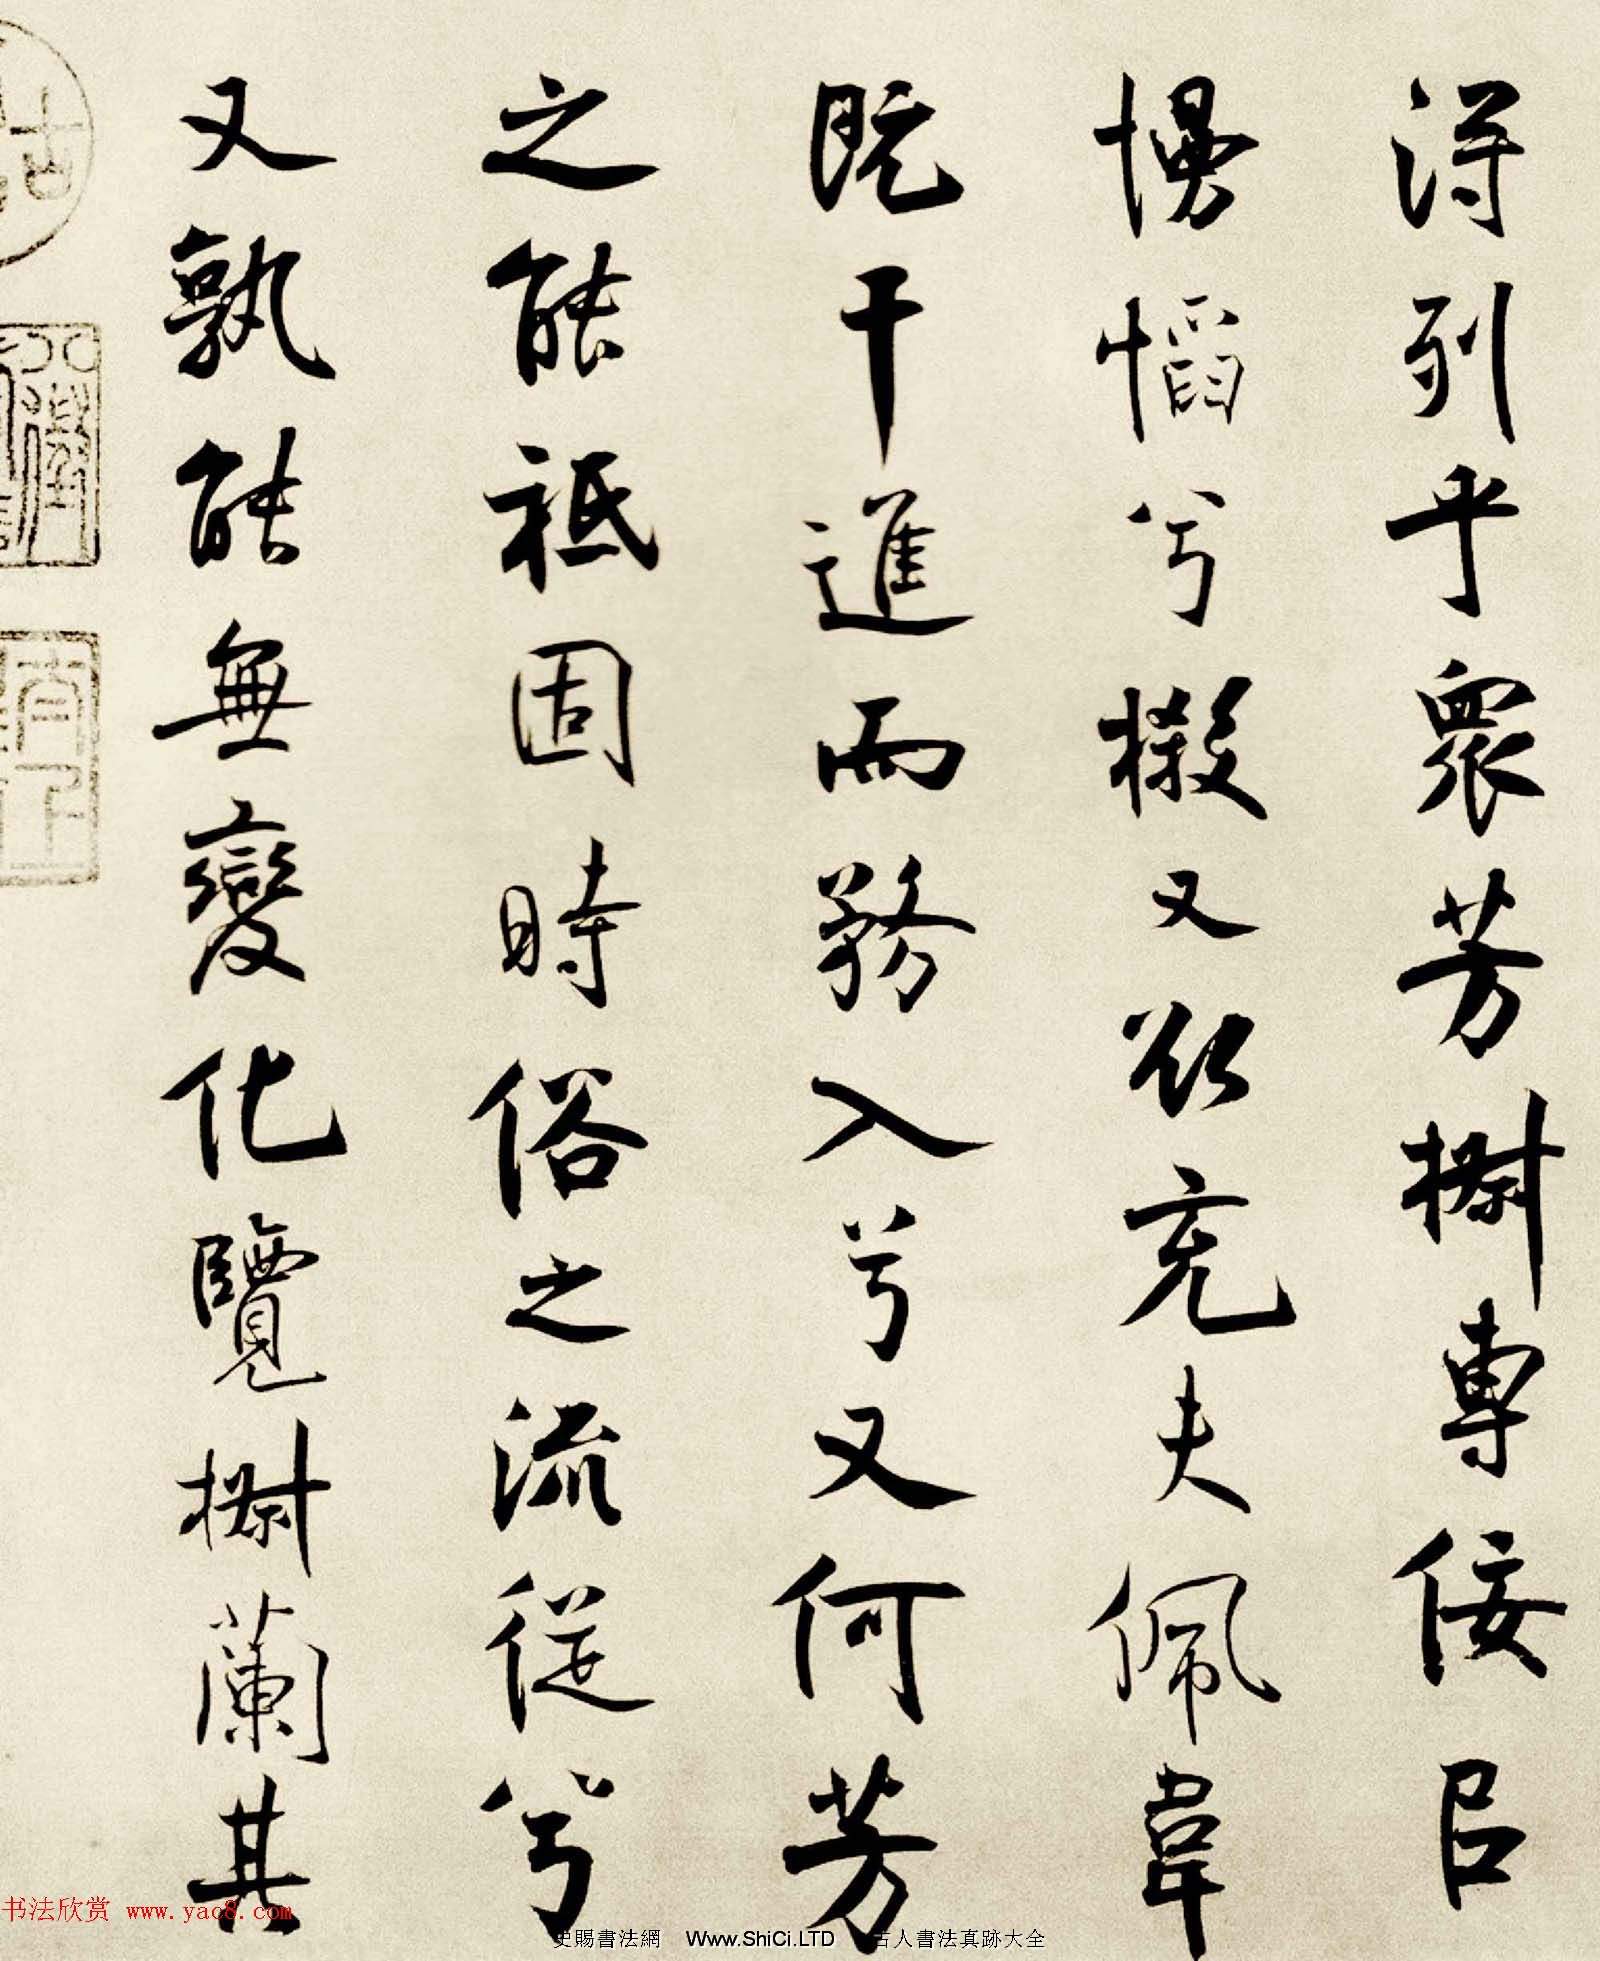 得列乎眾芳椒專佞以
慢慆兮樧又欲充夫佩幃
既干進而務入兮又何芳
之能祗固時俗之流從兮
又孰能無變化覽椒蘭其
书法欣赏 www.yac8.com
史賜書法網 Www.ShiCi.LTD 古人書法真跡大全